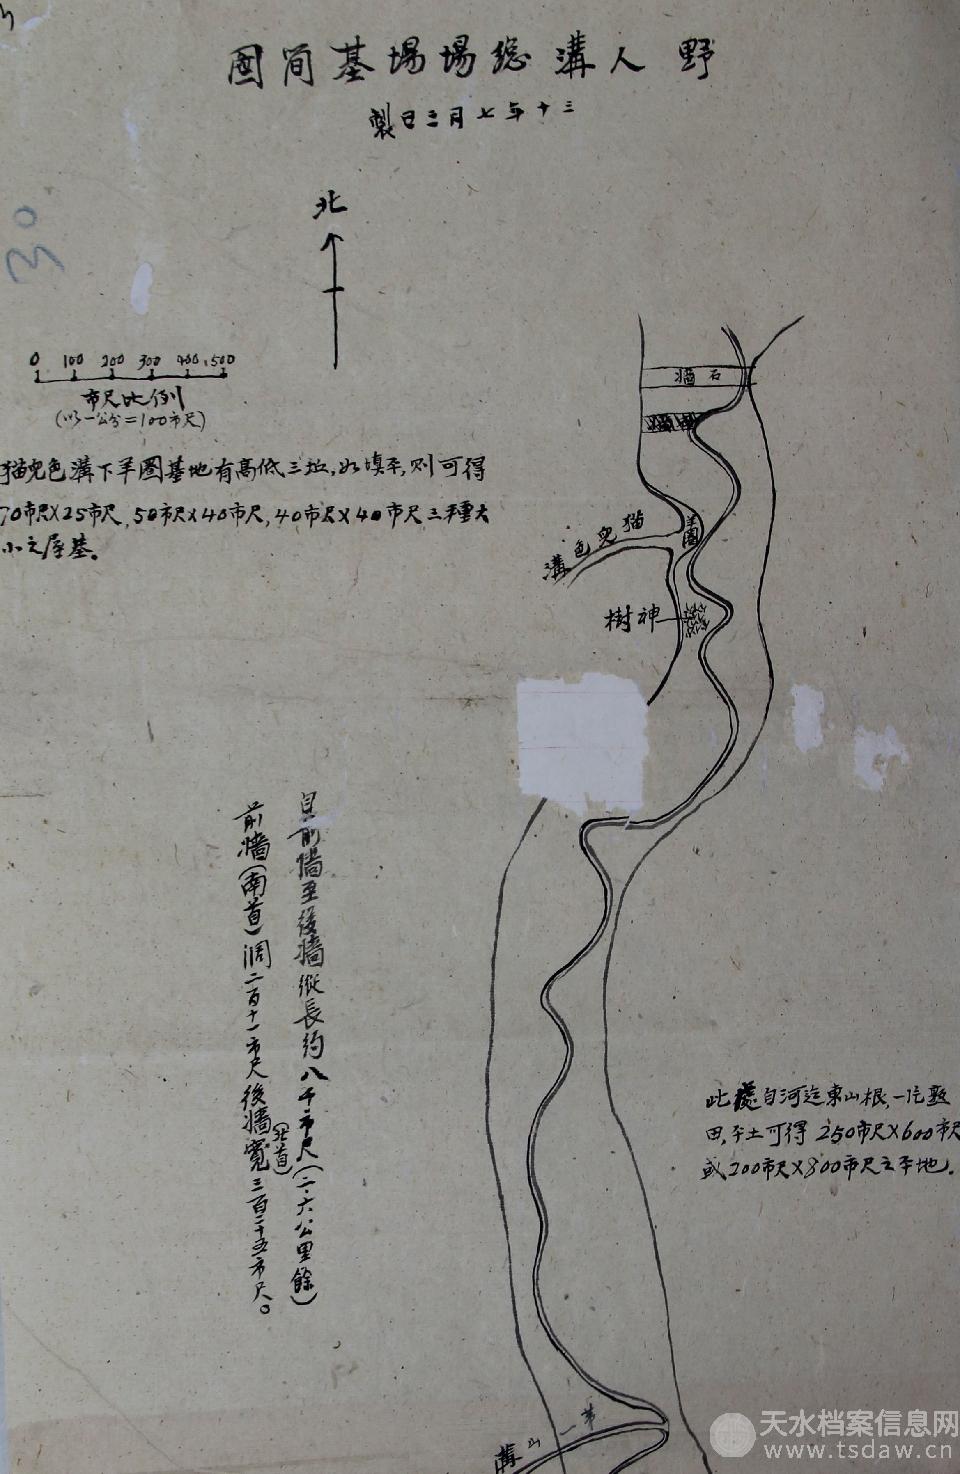 野人溝總場場基簡圖
三十年七月三日製
北
30
0 100 200 300 400 500
市尺比例
(以一公分=100市尺)
猫兒色溝下羊圈基地有高低三址,如填平,则可得
70市尺×25市尺,50市尺×40市尺,40市尺×40市尺三種大
小之屋基。
石墻
羊圈
猫兒色溝
神樹
自前墻至後墻縱長約八千市尺(二·六公里餘)
前墻(南首)濶二百十一市尺後墻(北首)寬三百二十五市尺。
此處自河迄東山根,一片熟
田,平土可得250市尺×600市尺
或200市尺×800市尺之平地。
第一山溝
天水档案信息网
www.tsdaw.cn